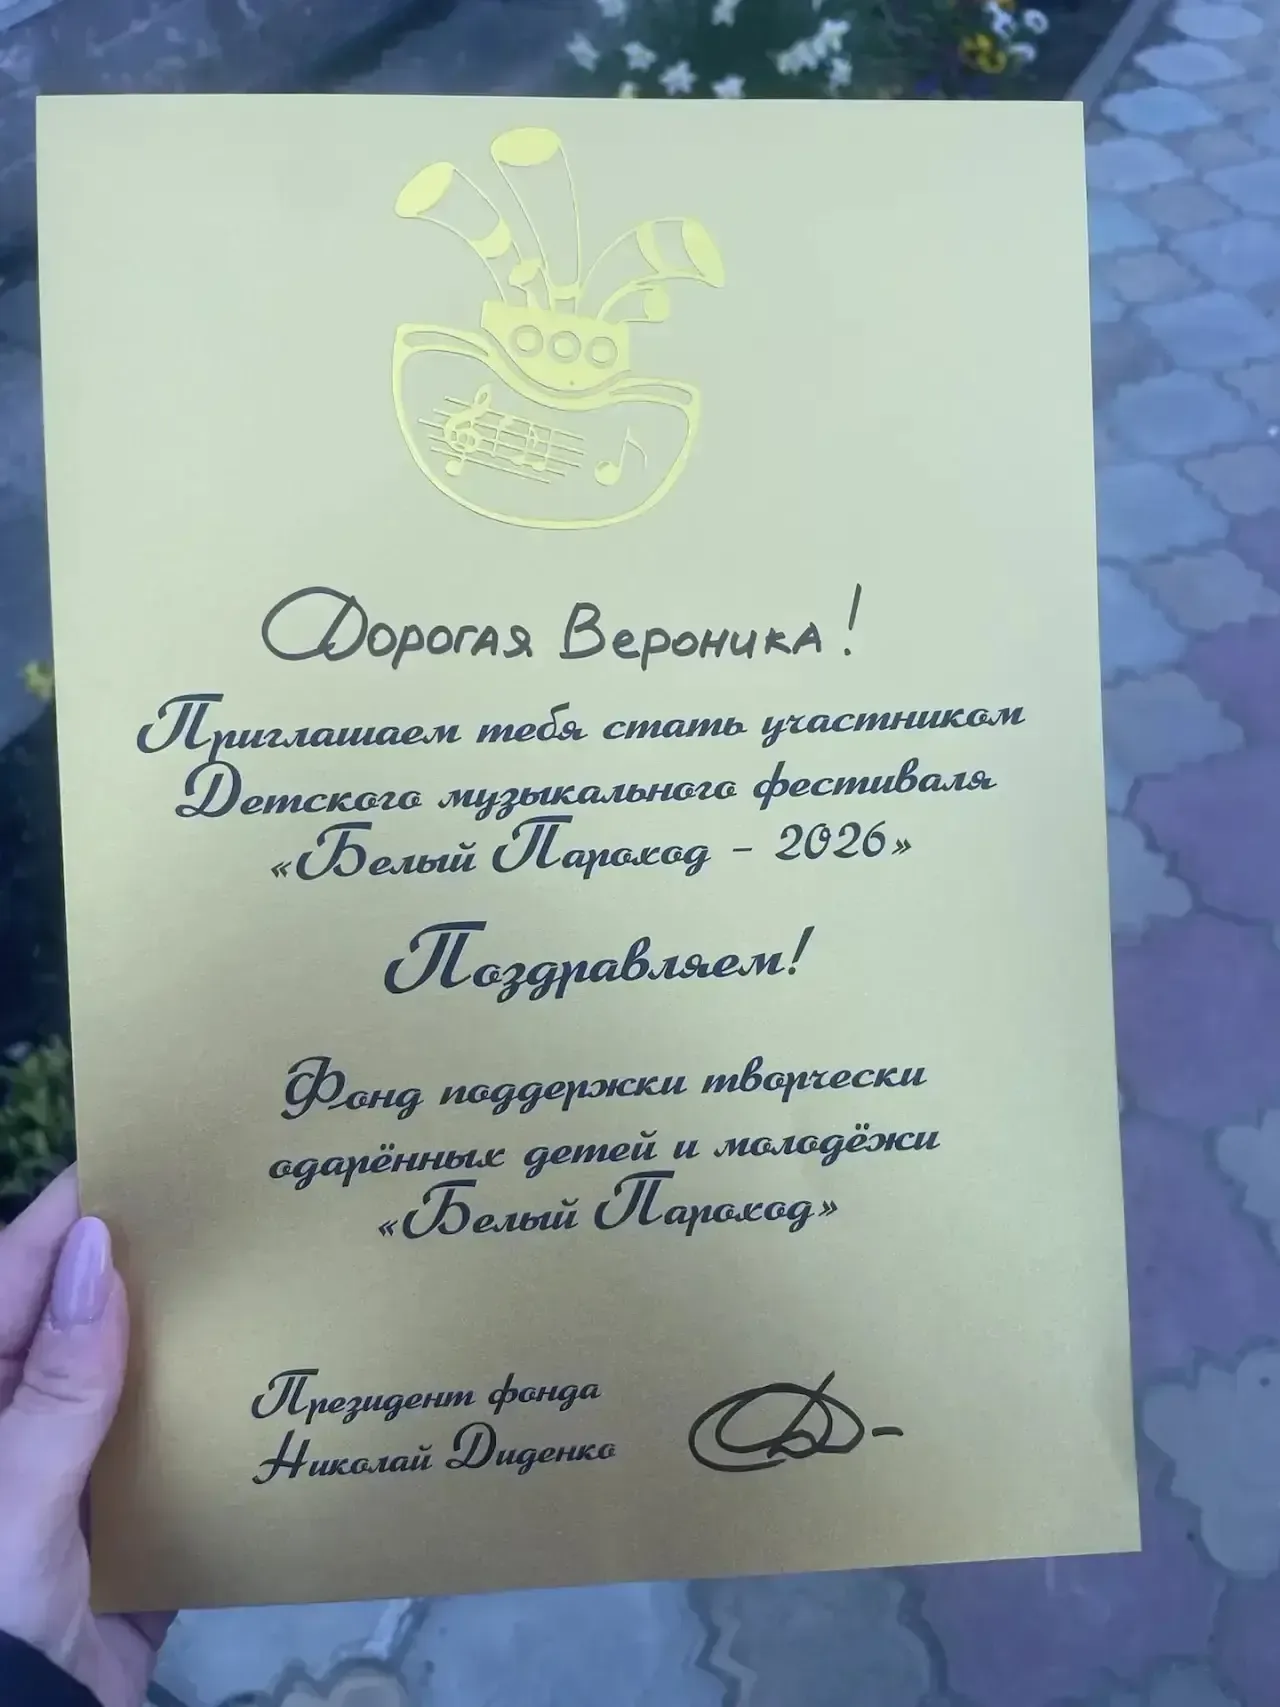 Дорогая Вероника!
Приглашаем тебя стать участником
Детского музыкального фестиваля
«Белый Пароход - 2026»
Поздравляем!
Фонд поддержки творчески
одарённых детей и молодёжи
«Белый Пароход»
Президент фонда
Николай Диденко